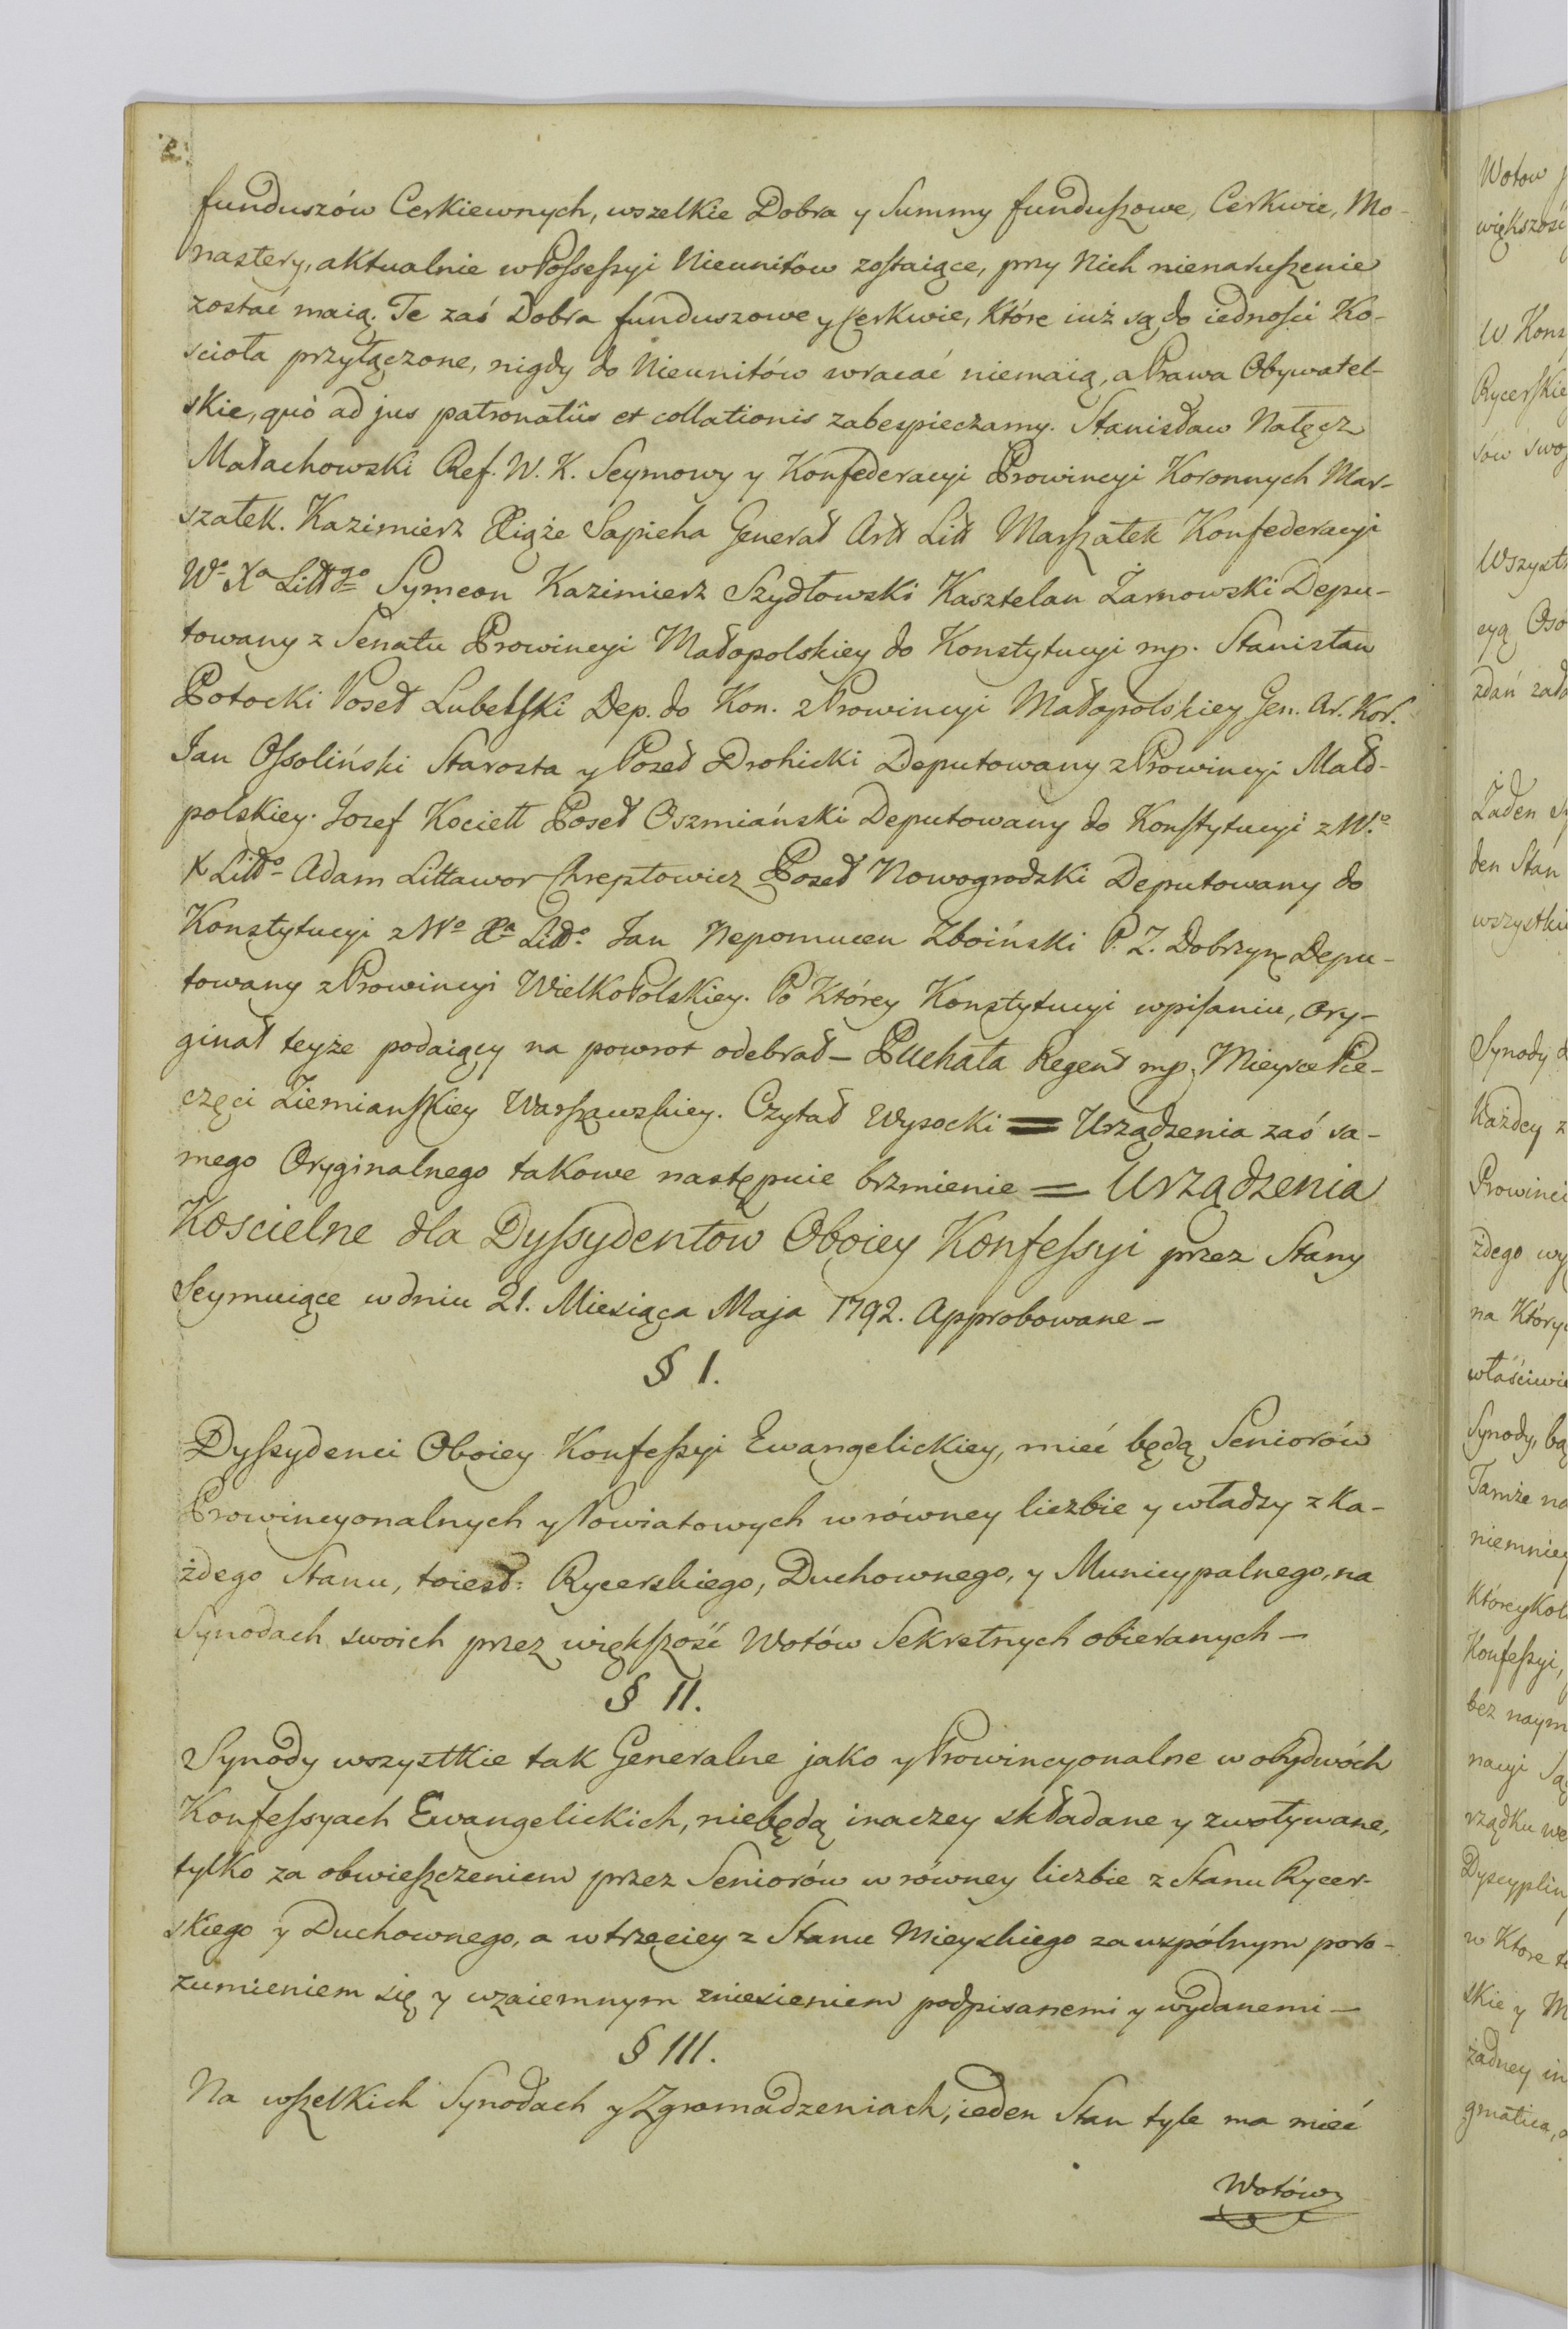 2.
funduszów Cerkiewnych, wszelkie Dobra y Summy funduszowe, Cerkwie, Mo-
nastery, aktualnie w Possessyi Nieunitow zostaiące, przy Nich nienaruszenie
zostać maią. Te zaś Dobra funduszowe y Cerkwie, które iuż są do iedności Ko-
scioła przyłączone, nigdy do Nieunitów wracać niemaią, a Prawa Obywatel-
skie, quò ad jus patronatûs et collationis zabespieczamy. Stanisław Nałęcz
Małachowski Ref. W. K. Seymowy y Konfederacyi Prowincyi Koronnych Mar-
szałek. Kazimierz Xiąże Sapieha Generał Artt Litt Marszałek Konfederacyi
Wo Xa Littgo Symeon Kazimierz Szydłowski Kasztelan Żarnowski Depu-
towany z Senatu Prowincyi Małopolskiey do Konstytucyi mp. Stanisław
Potocki Poseł Lubelski Dep. do Kon. z Prowincyi Małopolskiey Gen. Ar. Kor.
Jan Ossoliński Starosta y Poseł Drohicki Deputowany z Prowincyi Mało-
polskiey. Jozef Kociełł Poseł Oszmiański Deputowany do Konstytucyi z W.o
X Litto Adam Littawor Chreptowicz Poseł Nowogrodzki Deputowany do
Konstytucyi z Wo Xa Litto. Jan Nepomucen Zboiński P. Z. Dobrzyn. Depu-
towany z Prowincyi WielkoPolskiey. Po Którey Konstytucyi wpisaniu, Ory-
ginał teyże podaiący na powrot odebrał – Puchała Regent mp. Mieysce Pie-
częci Ziemianskiey Warszawskiey. Czytał Wysocki = Urządzenia zaś sa-
mego Oryginalnego takowe następuie brzmienie = Urządzenia
Koscielne dla Dyssydentow Oboiey Konfessyi przez Stany
Seymuiące w dniu 21. Miesiąca Maja 1792. Approbowane –
§ I.
Dyssydenci Oboiey Konfessyi Ewangelickiey, mieć będą Seniorów
Prowincyonalnych y Powiatowych w równey liczbie y władzy z Ka-
żdego Stanu, toiest: Rycerskiego, Duchownego, y Municypalnego, na
Synodach swoich przez większość Wotów Sekretnych obieranych –
§ II.
Synody wszystkie tak Generalne jako y Prowincyonalne w obydwóch
Konfessyach Ewangelickich, niebędą inaczey składane y zwoływane,
tylko za obwieszczeniem przez Seniorów w równey liczbie z Stanu Rycer-
skiego y Duchownego, a w trzeciey z Stanu Mieyskiego za wspólnym poro-
zumieniem się y wzaiemnym zniesieniem podpisanemi y wydanemi –
§ III.
Na wszelkich Synodach y Zgromadzeniach, ieden Stan tyle ma mieć
Wotów
Wotow
większość
W Kons
Rycerskie
sow swo
Wszystk
cyą Oso
zdań zad
Żaden
den Stan
wszystki
Synody
Każdey z
Prowinci
żdego wy
na Który
właściwie
Synody, bą
Tamże na
niemniey
Któreykol
Konfessyi,
bez naym
nacyi Są
rządku we
Dyscyplin
w Ktore
skie y M
żadney in
gmatica,